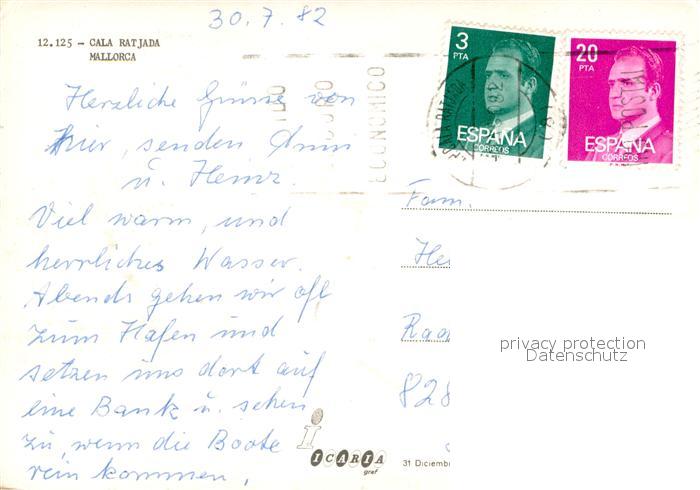 30.7.82
12.125 - CALA RATJADA
MALLORCA
Herzliche Grüsse von
hier, senden Ann
u. Heinz.
Viel warm, und
herrliches Wasser.
Abends gehen wir oft
zum Hafen und
setzen uns dort auf
eine Bank u. sehen
zu, wenn die Boote
rein kommen,
3
PTA
ESPAÑA
CORREOS
20
PTA
ESPAÑA
CORREOS
Fam.
He
Raa
828
privacy protection
Datenschutz
i
ICARIA
graf
31 Diciemb